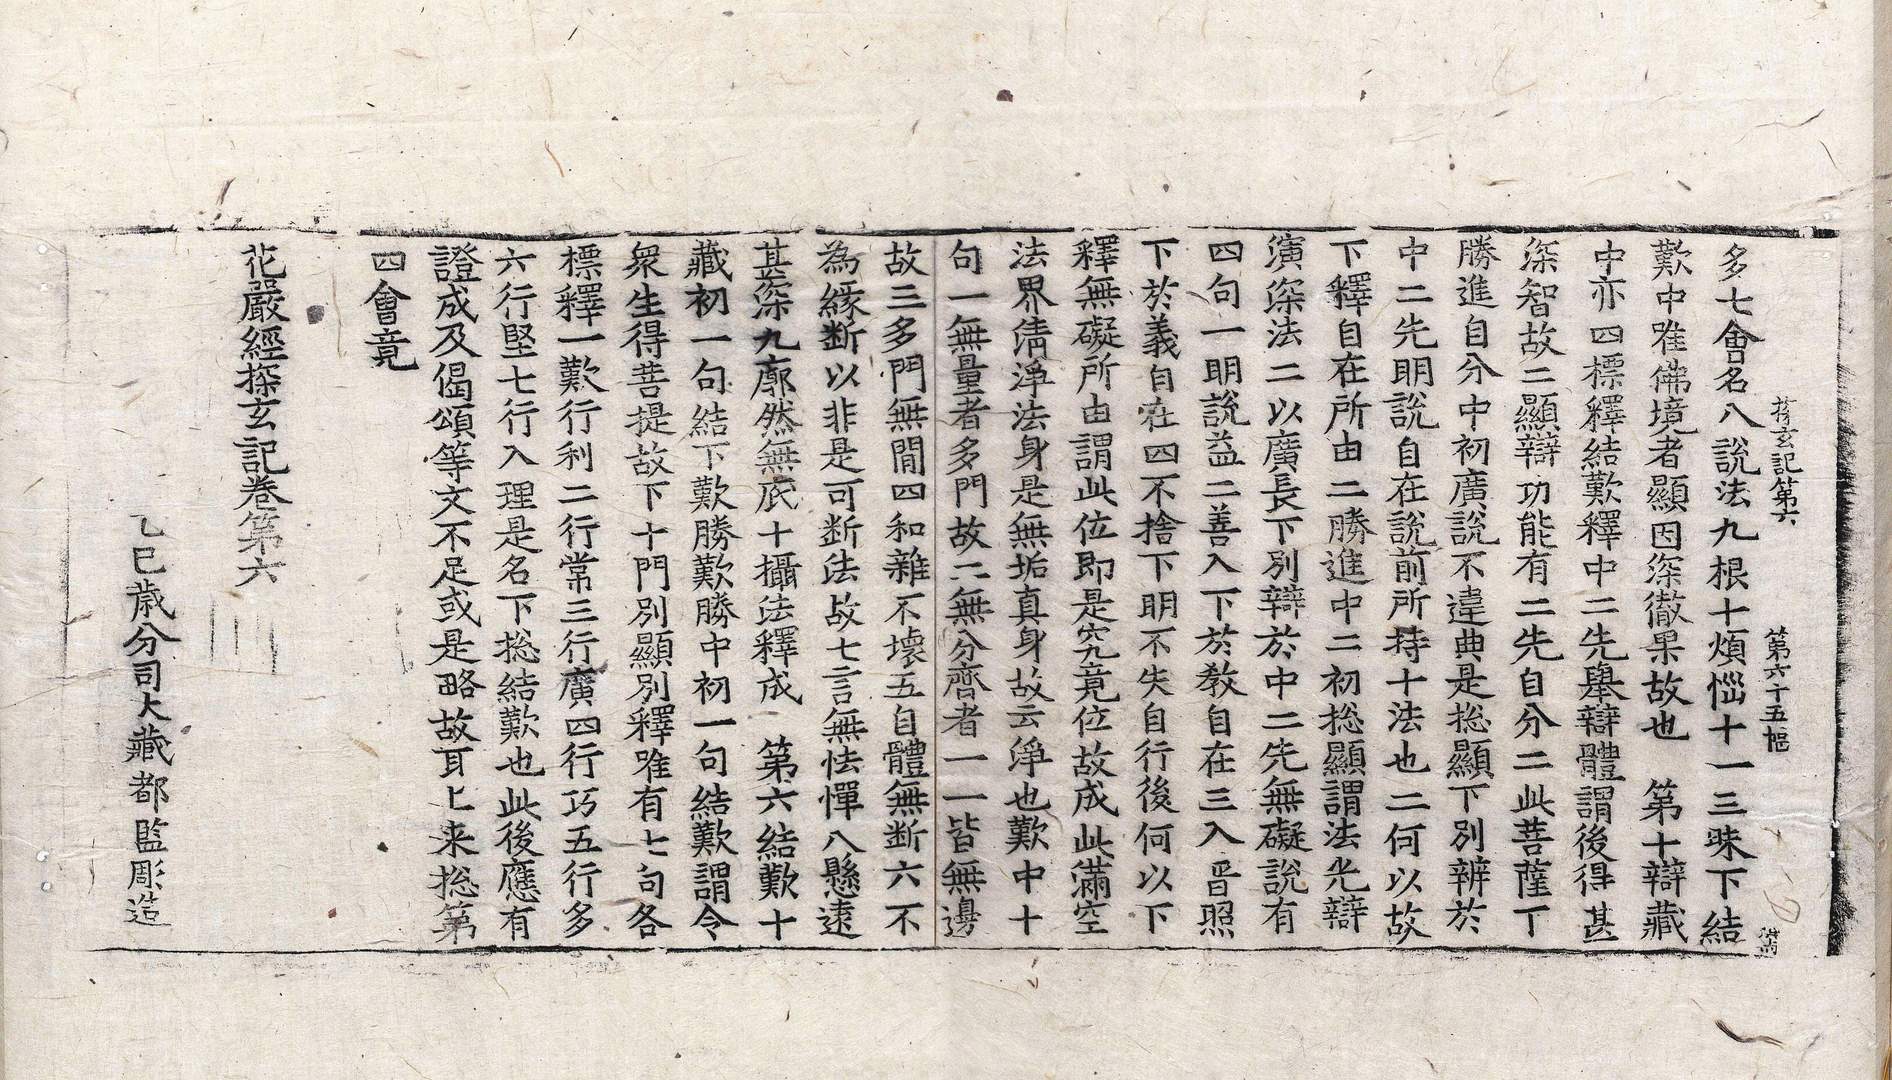 探玄記第六 第六十五幅
多七會名八說法九根十煩惱十一三昧下結
歎中唯佛境者顯因深徹果故也 第十辯藏
中亦四標釋結歎釋中二先舉辯體謂後得甚
深智故二顯辯功能有二先自分二此菩薩下
勝進自分中初廣說不違典是捴顯下別辨於
中二先明說自在說前所持十法也二何以故
下釋自在所由二勝進中二初捴顯謂法光辯
演深法二以廣長下別辯於中二先無礙說有
四句一明說益二善入下於教自在三入晉照
下於義自在四不捨下明不失自行後何以下
釋無礙所由謂此位即是究竟位故成此滿空
法界清淨法身是無垢真身故云淨也歎中十
句一無量者多門故二無分齊者一一皆無邊
故三多門無間四和雜不壞五自體無断六不
為緣断以非是可断法故七言無怯憚八懸遠
甚深九廓然無底十攝法釋成 第六結歎十
藏初一句結下歎勝歎勝中初一句結歎謂令
衆生得菩提故下十門別顯別釋唯有七句各
標釋一歎行利二行常三行廣四行巧五行多
六行堅七行入理是名下捴結歎也此後應有
證成及偈頌等文不足或是略故耳上来捴第
四會竟
花嚴經探玄記卷第六
乙巳歳分司大藏都監彫造